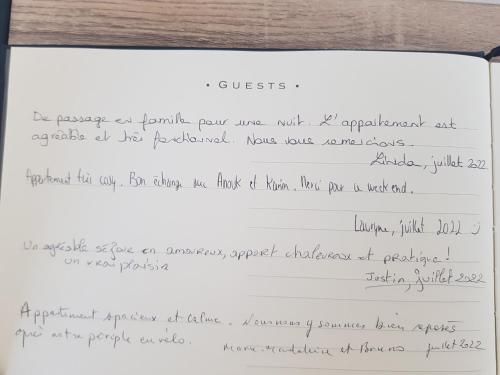 • GUESTS •
De passage en famille pour une nuit. L'appartement est
agréable et très fonctionnel. Nous vous remercions.
Linda, juillet 2022
Appartement très cosy. Bon échange avec Anouk et Karim. Merci pour ce week end.
juillet 2022 :)
Un agréable séjour en amoureux, appart chaleureux et pratique !
un vrai plaisir
Justin, juillet 2022
Appartement spacieux et calme. Nous nous y sommes bien reposés
après notre périple en vélo.
Marie-Madeleine et Bruno juillet 2022